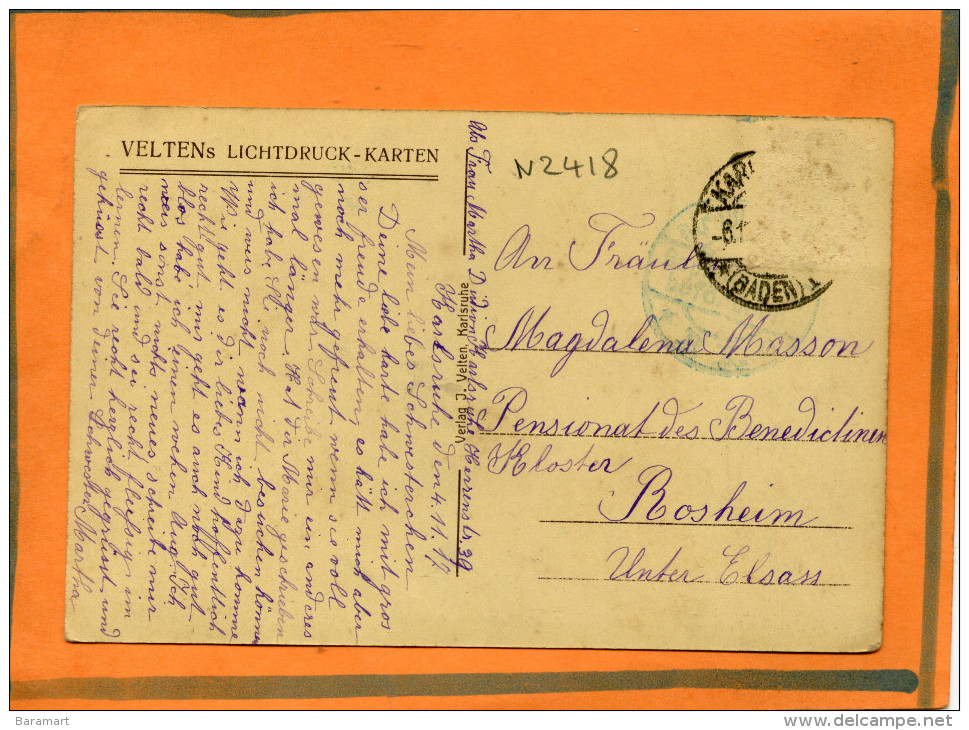 VELTENs LICHTDRUCK-KARTEN
N2418
Abs Frau Martha Karlsruhe Herrenstr 39
Verlag J. Velten, Karlsruhe
KARL
-6.1
(BADEN)
An Fräul
Magdalena Masson
Pensionat des Benedictinen
Kloster
Rosheim
Unter Elsass
Karlsruhe den 4.11.17
Mein liebes Schwesterchen
Deine liebe Karte habe ich mit gros
ser freude erhalten, es hätt mich aber
noch mehr gefreut wenn sie voll
gewesen wär. Schreibe mir ein anderes
mal länger. Hat dir Marie geschrieben
ich habe Sie noch nicht besuchen können
und weis nicht wann ich dazu komme
Wie geht es dir liebes Kind hoffentlich
recht gut mir geht es auch recht gut
blos habe ich einen wehen Aug. Ich
weis sonst nichts neues schreibe mir
recht bald und sei recht fleisig im
lernen. Sie recht herzlich gegrüsst und
geküsst von deiner Schwester Martha
Baramart
delcampe.net